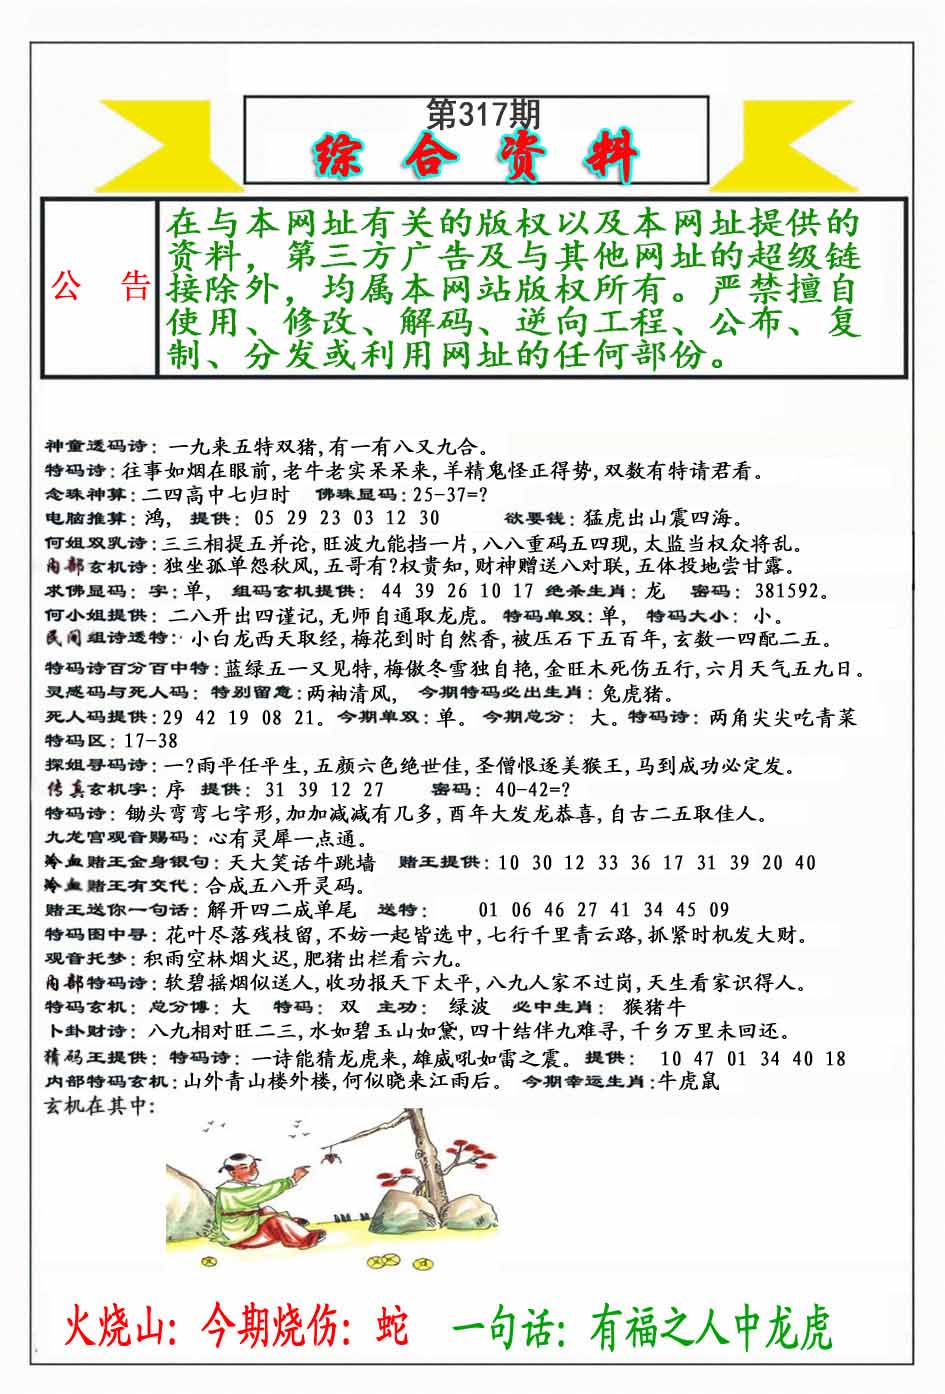 第317期
综合资料
公 告
在与本网址有关的版权以及本网址提供的
资料，第三方广告及与其他网址的超级链
接除外，均属本网站版权所有。严禁擅自
使用、修改、解码、逆向工程、公布、复
制、分发或利用网址的任何部份。
神童透码诗：一九来五特双猪,有一有八又九合。
特码诗:往事如烟在眼前,老牛老实呆呆来,羊精鬼怪正得势,双数有特请君看。
念珠神算:二四高中七归时 佛珠显码:25-37=?
电脑推算:鸿, 提供: 05 29 23 03 12 30 欲要钱:猛虎出山震四海。
何姐双乳诗:三三相提五并论,旺波九能挡一片,八八重码五四现,太监当权众将乱。
内部玄机诗:独坐孤单怨秋风,五哥有?权贵知,财神赠送八对联,五体投地尝甘露。
求佛显码: 字:单, 组码玄机提供: 44 39 26 10 17 绝杀生肖:龙 密码: 381592。
何小姐提供: 二八开出四谨记,无师自通取龙虎。特码单双:单, 特码大小: 小。
民间组诗透特: 小白龙西天取经,梅花到时自然香,被压石下五百年,玄数一四配二五。
特码诗百分百中特:蓝绿五一又见特,梅傲冬雪独自艳,金旺木死伤五行,六月天气五九日。
灵感码与死人码: 特别留意:两袖清风, 今期特码必出生肖: 兔虎猪。
死人码提供:29 42 19 08 21。今期单双:单。 今期总分: 大。特码诗: 两角尖尖吃青菜
特码区:17-38
探姐寻码诗:一?雨平任平生,五颜六色绝世佳,圣僧恨逐美猴王,马到成功必定发。
传真玄机字: 序 提供: 31 39 12 27 密码: 40-42=?
特码诗: 锄头弯弯七字形,加加减减有几多,酉年大发龙恭喜,自古二五取佳人。
九龙宫观音赐码: 心有灵犀一点通。
冷血赌王金身银句:天大笑话牛跳墙 赌王提供:10 30 12 33 36 17 31 39 20 40
冷血赌王有交代: 合成五八开灵码。
赌王送你一句话: 解开四二成单尾 送特: 01 06 46 27 41 34 45 09
特码图中寻: 花叶尽落残枝留,不妨一起皆选中,七行千里青云路,抓紧时机发大财。
观音托梦:积雨空林烟火迟,肥猪出栏看六九。
内部特码诗:软碧摇烟似送人,收功报天下太平,八九人家不过岗,天生看家识得人。
特码玄机: 总分博: 大 特码: 双 主功: 绿波 必中生肖: 猴猪牛
卜卦财诗: 八九相对旺二三,水如碧玉山如黛,四十结伴九难寻,千乡万里未回还。
猜码王提供: 特码诗: 一诗能猜龙虎来,雄威吼如雷之震。 提供: 10 47 01 34 40 18
内部特码玄机:山外青山楼外楼,何似晓来江雨后。 今期幸运生肖:牛虎鼠
玄机在其中:
火烧山: 今期烧伤: 蛇 一句话: 有福之人中龙虎